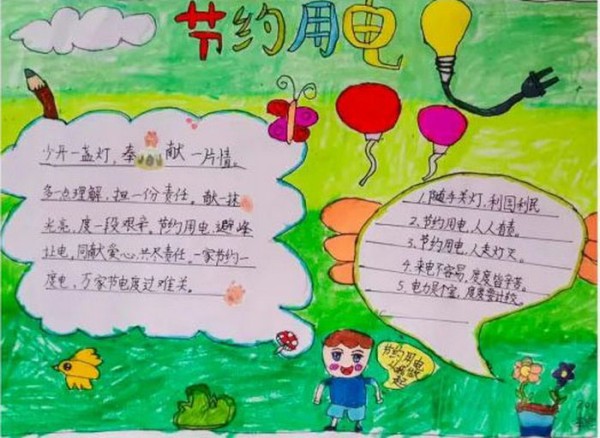 节约用电
少开一盏灯，奉献一片情。
多一点理解，担一份责任。献一抹
光亮，度一段艰辛。节约用电，避峰
让电，同献爱心，共尽责任，一家节约一
度电，万家节电度过难关。
1.随手关灯，利国利民
2.节约用电，人人有责。
3.节约用电，人走灯灭。
4.来电不容易，度度皆辛苦。
5.电力是个宝，度度要计较。
节约用电
从我做
起